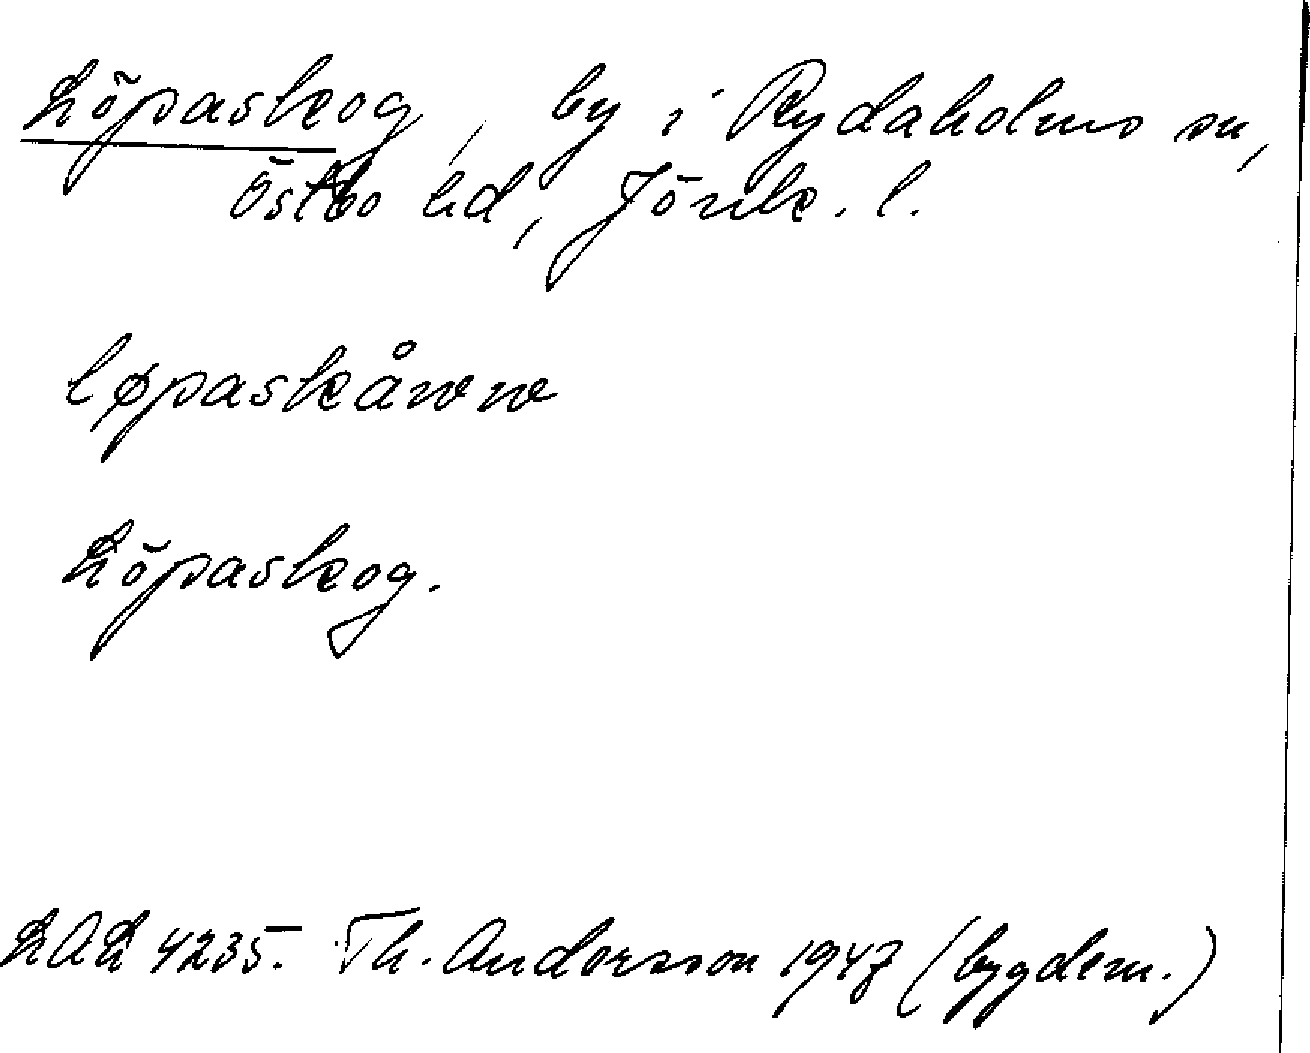 Löpaskog, by i Rydaholms sn,
Östbo hd, Jönk. l.
løpaskåww
Löpaskog.
LAL 4235. Th. Andersson 1947 (bygdem.)